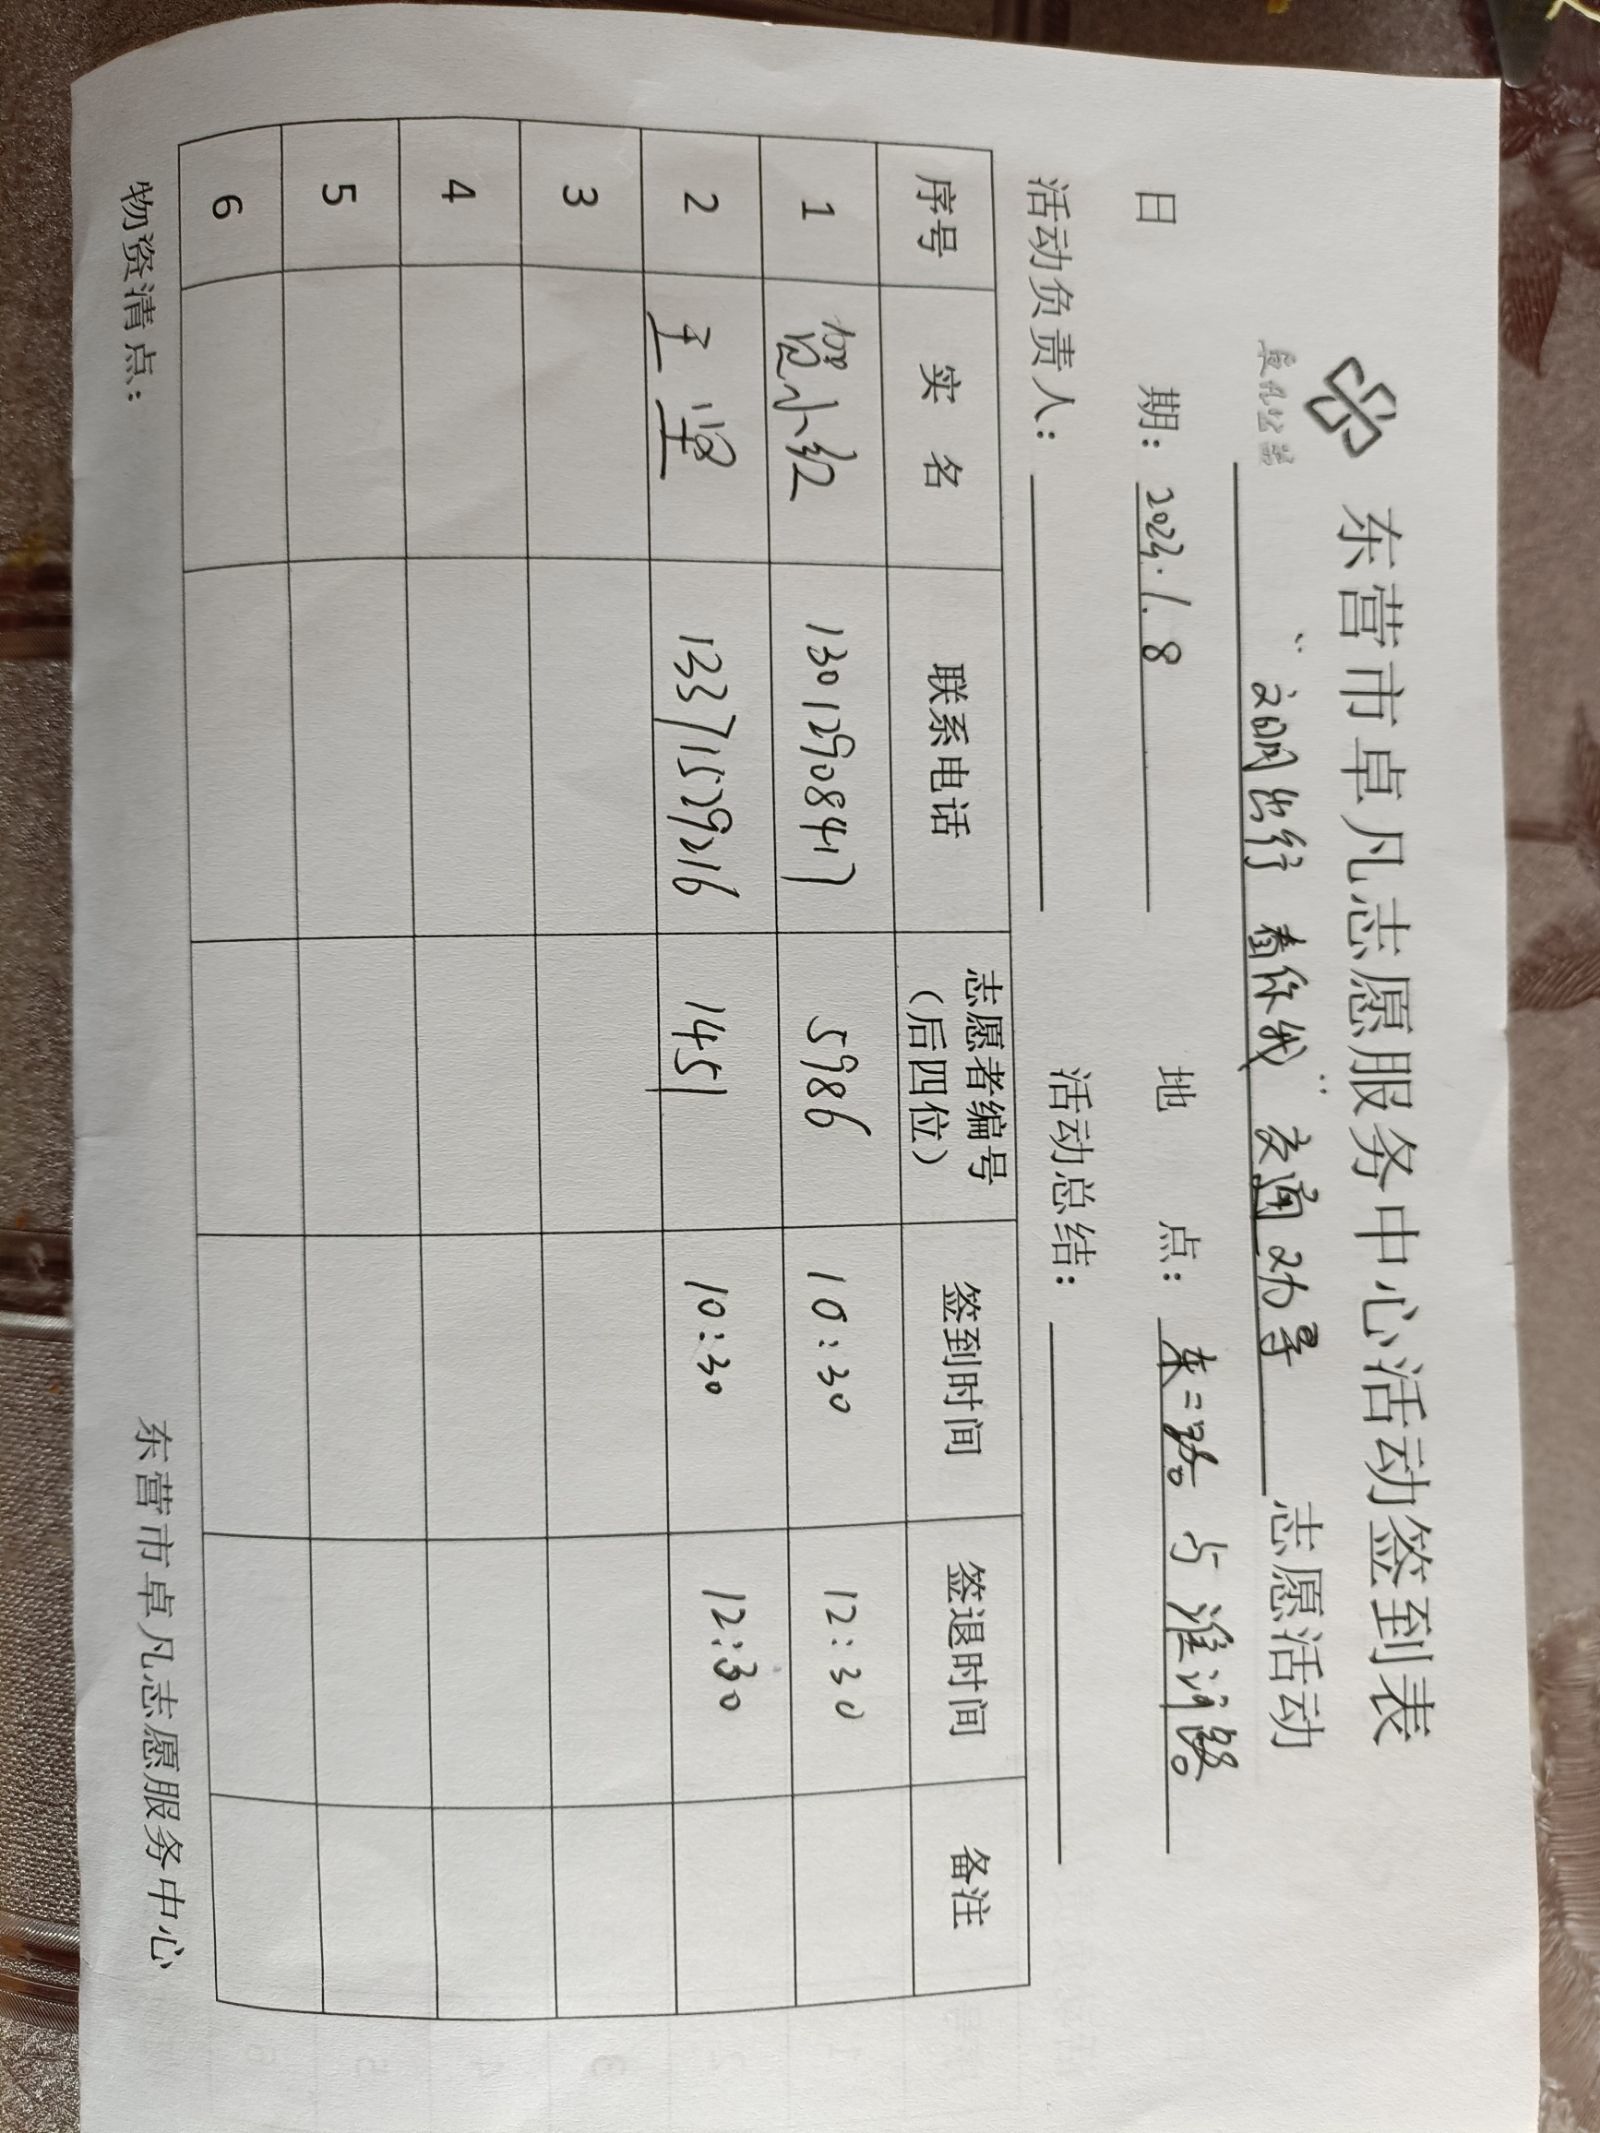 东营市卓凡志愿服务中心活动签到表
卓凡公益
“文明出行 看你我”交通劝导 志愿活动
日 期：2023.1.8 地 点：东二路与淮河路
活动负责人： 活动总结：
序号 实 名 联系电话 志愿者编号（后四位） 签到时间 签退时间 备注
1 小红 13012908417 5986 10:30 12:30
2 王莹 13371529216 1451 10:30 12:30
3
4
5
6
物资清点： 东营市卓凡志愿服务中心